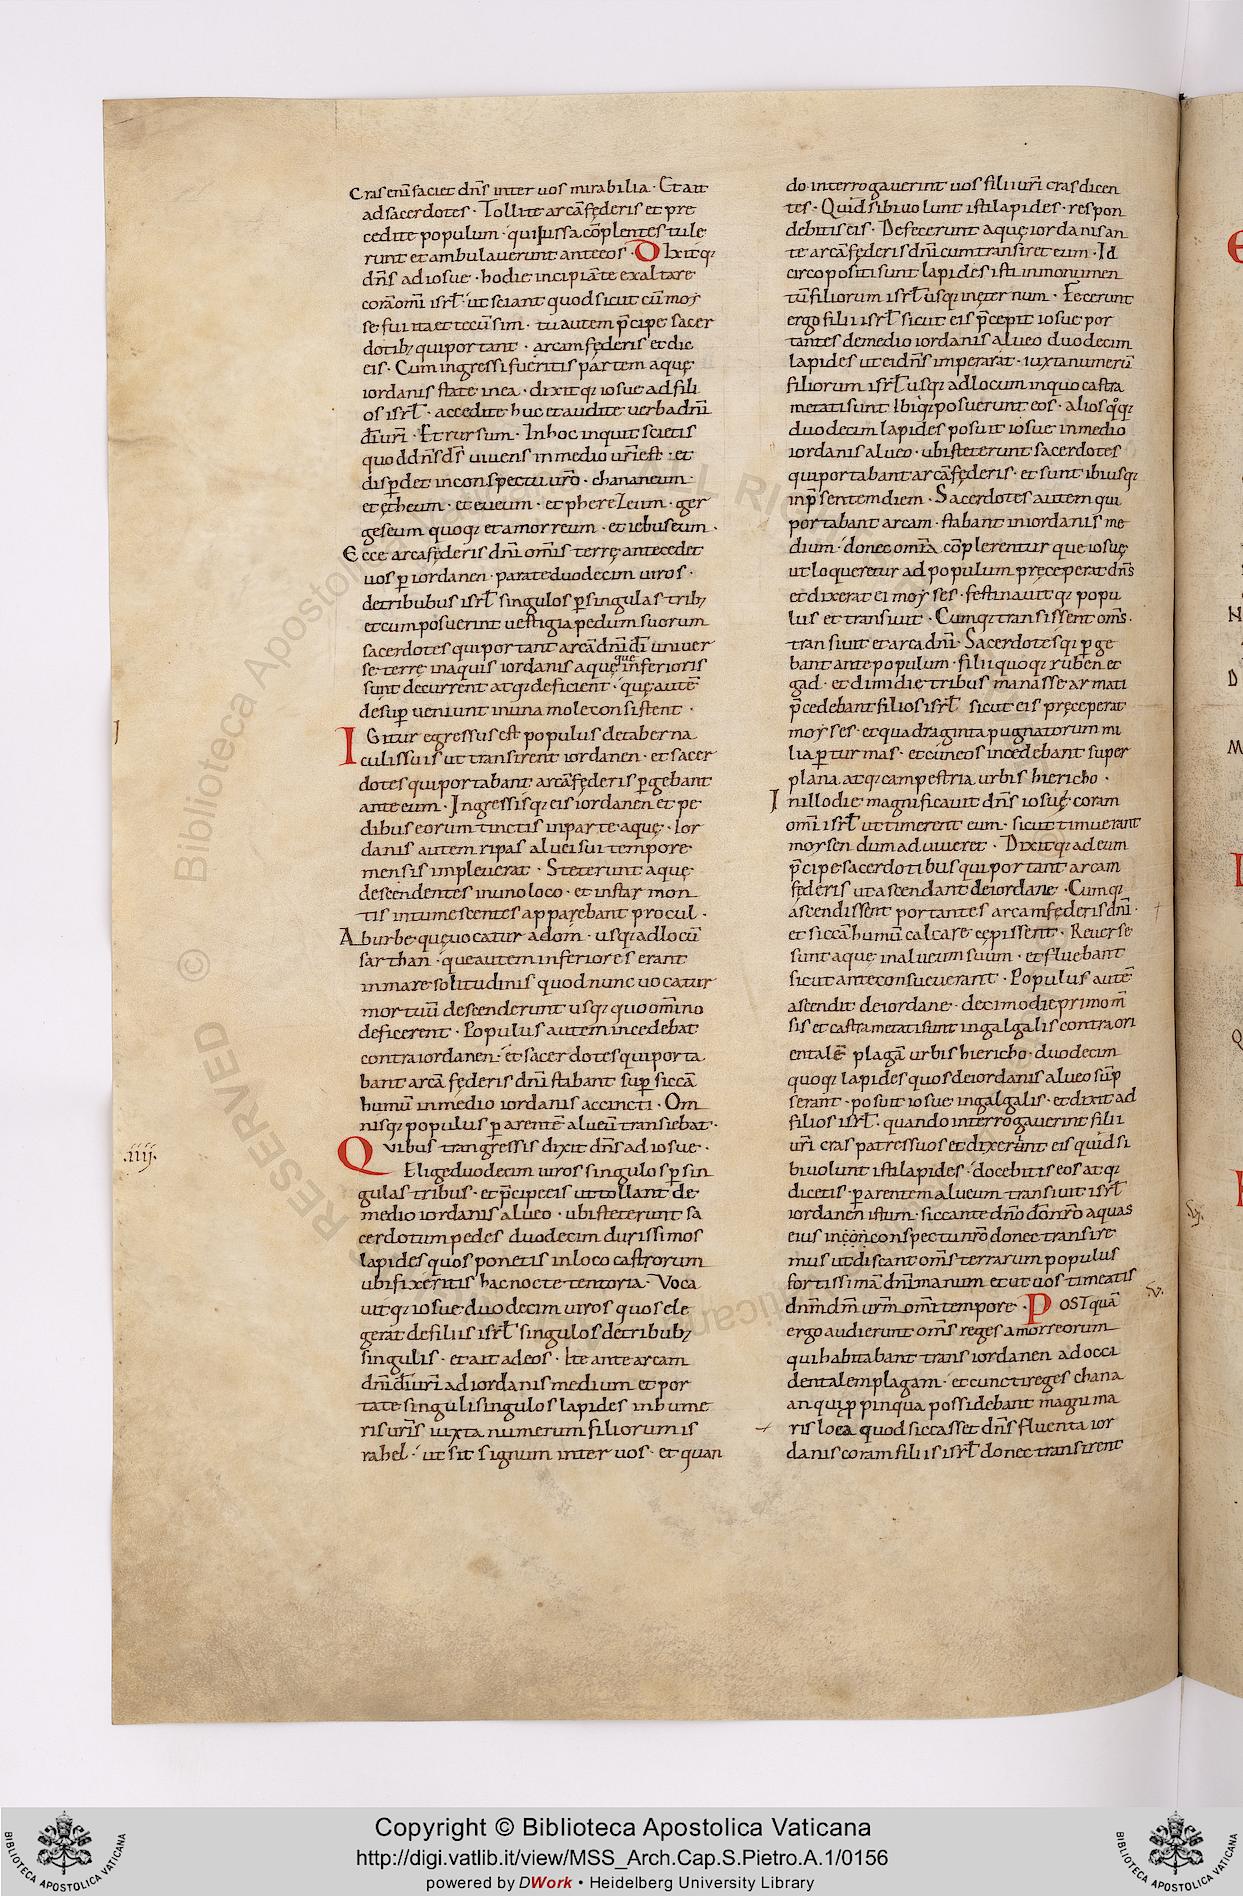 Cras eni̅ faciet dn̅s inter uos mirabilia · Et ait
ad sacerdotes · Tollite arca̅ fęderis et pre
cedite populum · qui iussa co̅plentes tule
runt et ambulauerunt ante eos · Dixitq;
dn̅s ad iosue · hodie incipia̅ te exaltare
cora̅ om̅i isrł · ut sciant quod sicut cu̅ moy
se fui ita et tecu̅ sim · tu autem p̅cipe sacer
dotib; qui portant · arcam fęderis et dic
eis · Cum ingressi fueritis partem aquę
iordanis state in ea · dixitq; iosue ad fili
os isrł · accedite huc et audite uerba dn̅i
di̅ uri̅ · Et rursum · In hoc inquit scietis
quod dn̅s ds̅ uiuens in medio uri̅ est · et
disp̲det in conspectu uro̅ · chananeum
et ętheum · et eueum · et pherezeum · ger
geseum quoq; et amorreum · et iebuseum ·
Ecce arca fęderis dn̅i om̅is terrę antecedet
uos p̲ iordanen · parate duodecim uiros ·
de tribubus isrł singulos p̲ singulas trib;
et cum posuerint uestigia pedum suorum
sacerdotes qui portant arca̅ dn̅i di̅ uniuer
se terrę in aquis iordanis aquę que inferioris
sunt decurrent atq; deficient · quę aute̅
desup̲ ueniunt in una mole consistent ·
IGitur egressus est populus de taberna
culis suis ut transirent iordanen · et sacer
dotes qui portabant arca̅ fęderis p̲gebant
ante eum · Ingressisq; eis iordanen et pe
dibus eorum tinctis in parte aquę · Ior
danis autem ripas aluei sui tempore
mensis impleuerat · Steterunt aquę
descendentes in uno loco · et instar mon
tis intumescentes apparebant procul ·
Ab urbe quę uocatur adom · usq; ad locu̅
sarthan · que autem inferiores erant
in mare solitudinis quod nunc uocatur
mortuu̅ descenderunt usq; quo om̅ino
deficerent · Populus autem incedebat
contra iordanen · et sacerdotes qui porta
bant arca̅ fęderis dn̅i stabant sup̲ sicca̅
humu̅ in medio iordanis accincti · Om
nisq; populus p̲ arente̅ alueu̅ transiebat ·
.iiij.
QVibus trangressis dixit dn̅s ad iosue ·
Elige duodecim uiros singulos p̲ sin
gulas tribus · et p̅cipe eis ut tollant de
medio iordanis alueo · ubi steterunt sa
cerdotum pedes duodecim durissimos
lapides quos ponetis in loco castrorum
ubi fixeritis hac nocte tentoria · Voca
uitq; iosue duodecim uiros quos ele
gerat de filiis isrł singulos de tribub;
singulis · et ait ad eos · Ite ante arcam
dn̅i di̅ uri̅ ad iordanis medium et por
tate singuli singulos lapides in hume
ris uris̅ iuxta numerum filiorum is
rahel · ut sit signum inter uos · et quan
do interrogauerint uos filii uri̅ cras dicen
tes · Quid sibi uolunt isti lapides · respon
debitis eis · Defecerunt aquę iordanis an
te arca̅ fęderis dn̅i cum transiret eum · Id
circo positi sunt lapides isti in monumen
tu̅ filiorum isrł usq; in ęternum · Fecerunt
ergo filii isrł sicut eis p̅cepit iosue por
tantes de medio iordanis alueo duodecim
lapides ut ei dn̅s imperarat · iuxta numeru̅
filiorum isrł usq; ad locum in quo castra
metati sunt Ibiq; posuerunt eos · alios qoq;
duodecim lapides posuit iosue in medio
iordanis alueo · ubi steterunt sacerdotes
qui portabant arca̅ fęderis · et sunt ibi usq;
in p̅sentem diem · Sacerdotes autem qui
portabant arcam · stabant in iordanis me
dium · donec om̅ia co̅plerentur que iosuę
ut loqueretur ad populum pręceperat dn̅s
et dixerat ei moyses · festinauitq; popu
lus et transiuit · Cumq; transissent om̅s ·
transiuit et arca dn̅i · Sacerdotesq; p̲ge
bant ante populum · filii quoq; ruben et
gad · et dimidie tribus manasse armati
p̅cedebant filios isrł sicut eis pręceperat
moyses · et quadraginta pugnatorum mi
lia p̲ turmas · et cuneos incedebant super
plana atq; campestria urbis hiericho ·
In illo die magnificauit dn̅s iosuę coram
om̅i isrł ut timerent eum · sicut timuerant
moysen dum aduiueret · Dixitq; ad eum
p̅cipe sacerdotibus qui portant arcam
fęderis ut ascendant de iordane · Cumq;
ascendissent portantes arcam fęderis dn̅i ·
et sicca̅ humu̅ calcare cępissent · Reuerse
sunt aque in alueum suum · et fluebant
sicut ante consueuerant · Populus aute̅
ascendit de iordane · decimo die primo m̅
sis et castra metati sunt in galgalis contra ori
entale̅ plaga̅ urbis hiericho · duodecim
quoq; lapides quos de iordanis alueo su̅p
serant · posuit iosue in galgalis · et dixit ad
filios isrł · quando interrogauerint filii
uri̅ cras patres suos et dixerint eis quid si
bi uolunt isti lapides · docebitis eos atq;
dicetis · p̲ arentem alueum transiuit isrł
iordanen istum · siccante dn̅o do̅ nro̅ aquas
eius in con conspectu nro̅ donec transire
mus ut discant om̅s terrarum populus
fortissima̅ dn̅i manum et ut uos timeatis
.v.
dn̅m dm̅ urm̅ om̅i tempore · POSTqua̅
ergo audierunt om̅s reges amorreorum
qui habitabant trans iordanen ad occi
dentalem plagam · et cuncti reges chana
an qui p̲pinqua possidebant magni ma
ris loca quod siccasset dn̅s fluenta ior
danis coram filiis isrł donec transirent
.vj.
© Biblioteca Apostolica Vaticana ALL RIGHTS RESERVED
Copyright © Biblioteca Apostolica Vaticana
http://digi.vatlib.it/view/MSS_Arch.Cap.S.Pietro.A.1/0156
powered by DWork • Heidelberg University Library
BIBLIOTECA APOSTOLICA VATICANA
BIBLIOTECA APOSTOLICA VATICANA